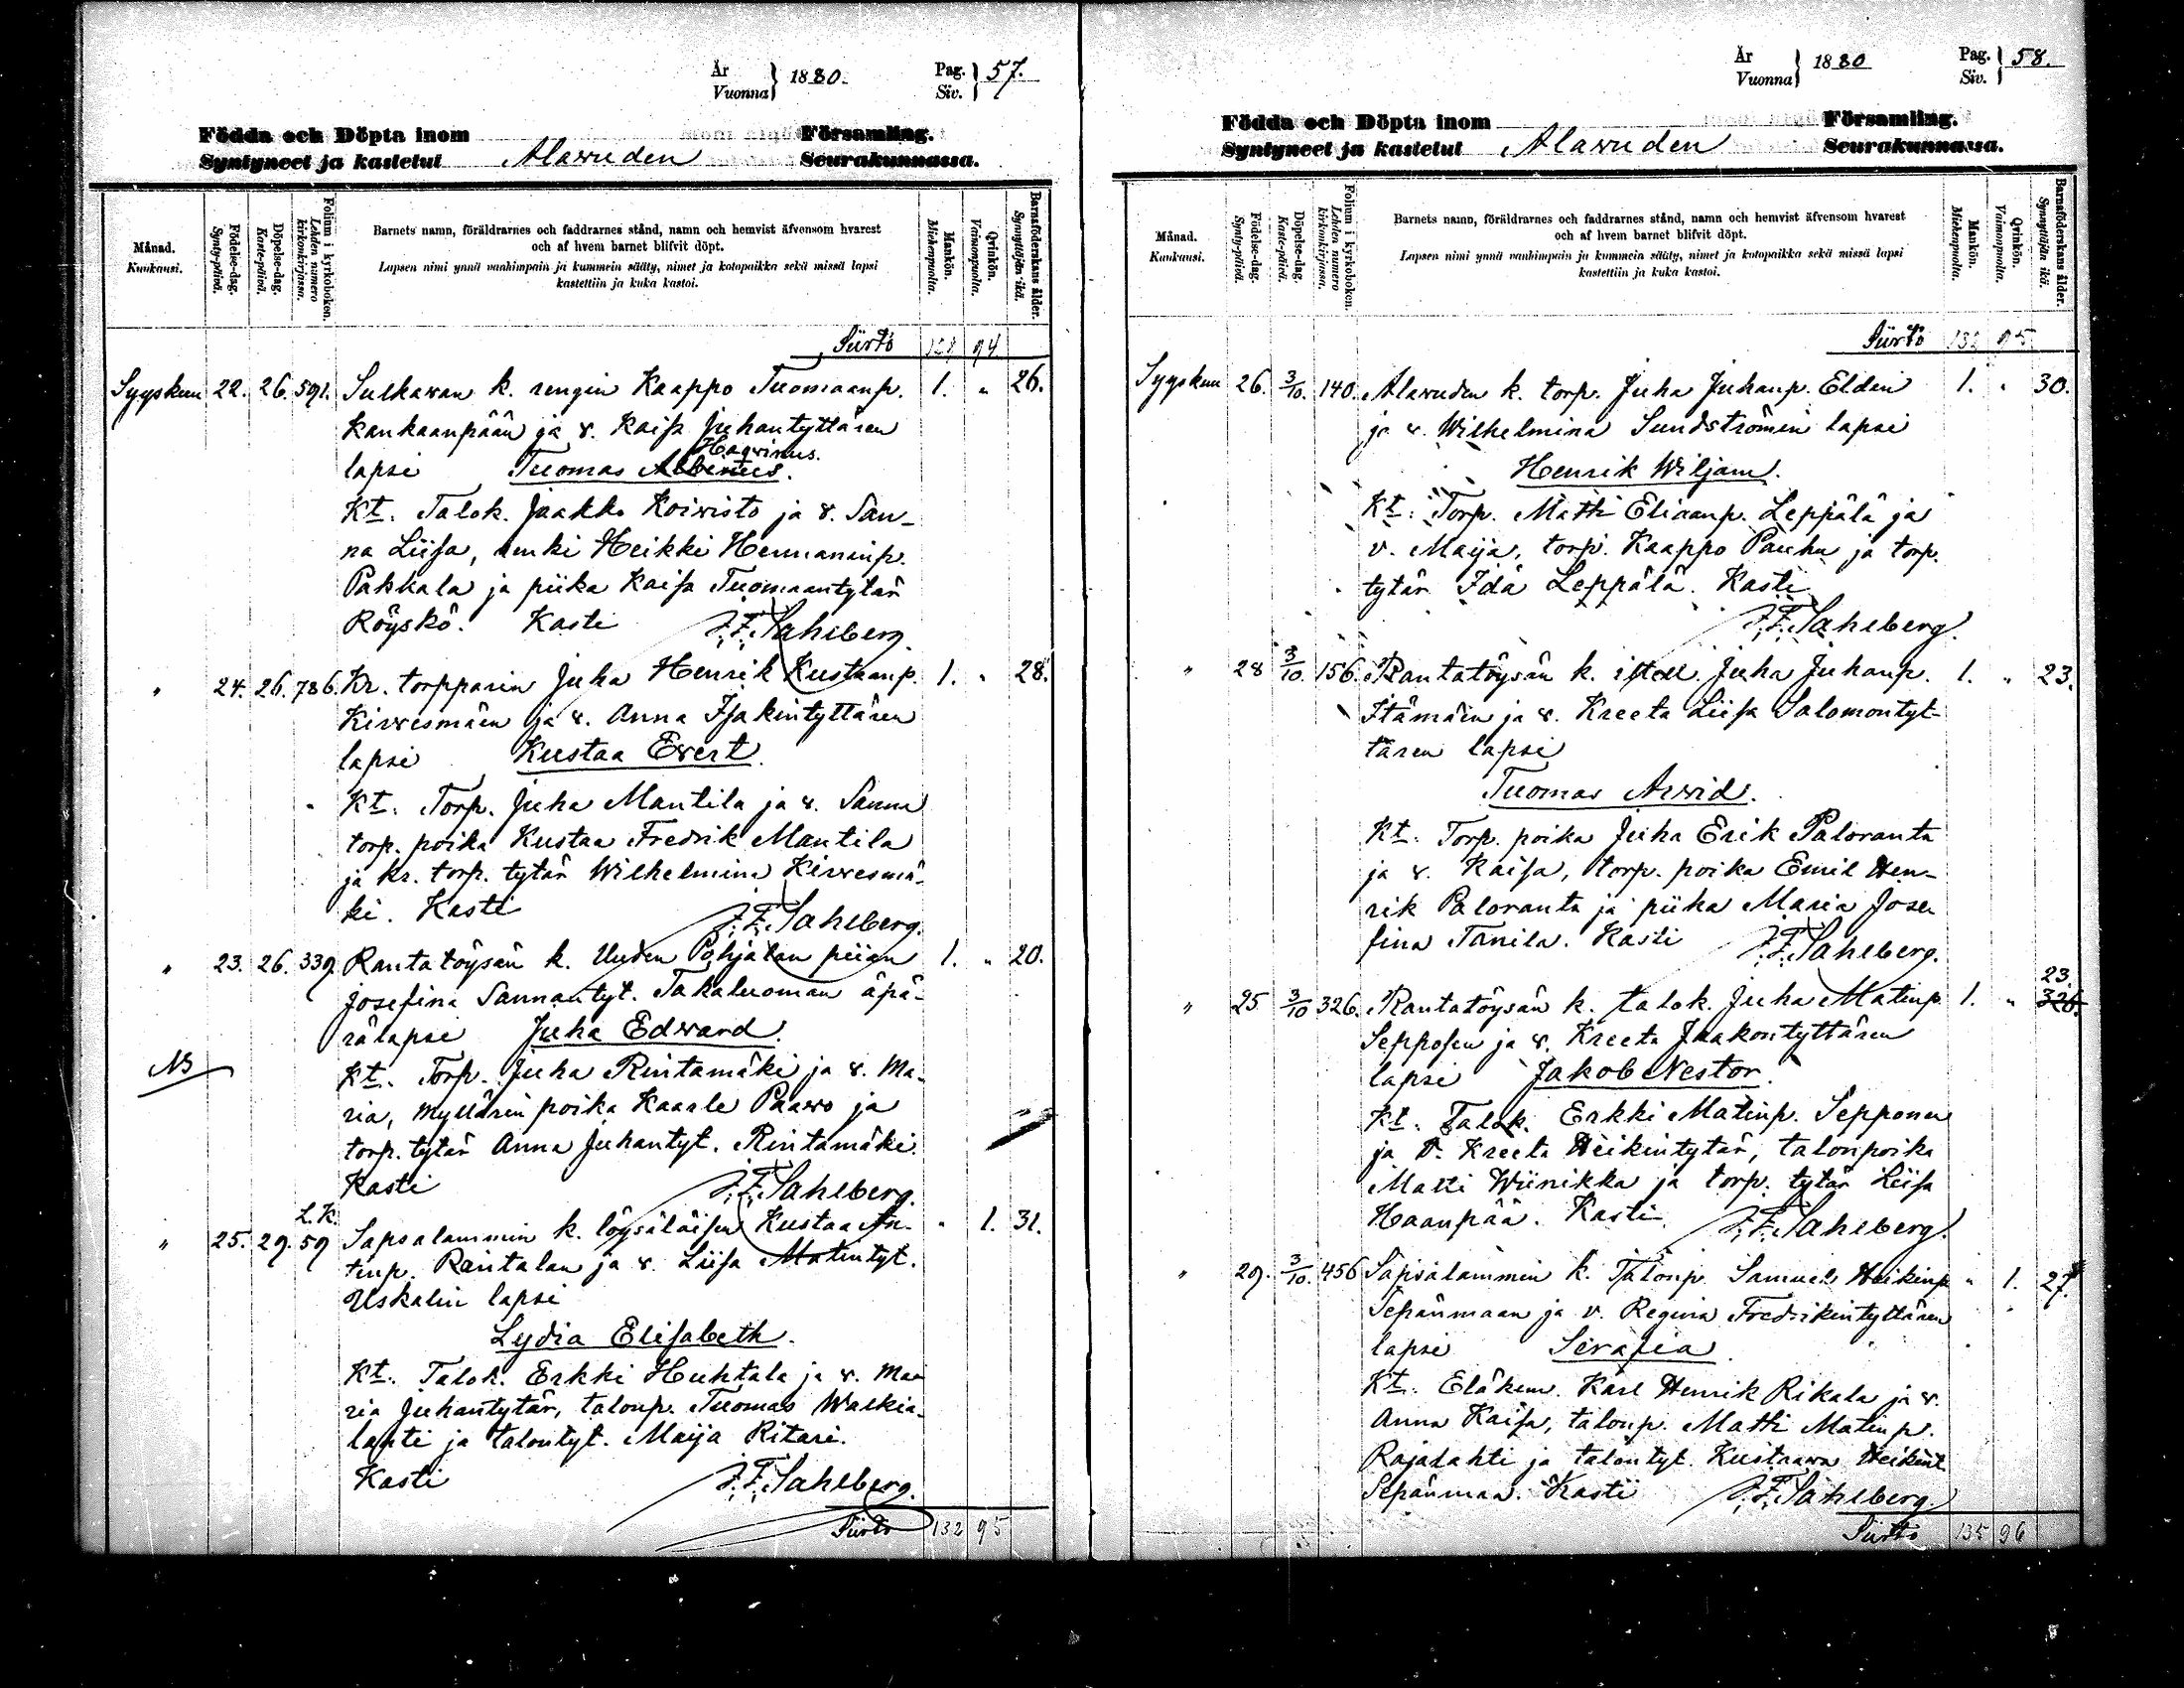 År
Vuonna
1880.
Pag.
Siv.
57.
Födda och Döpta inom Församling.
Syntyneet ja kastetut Alawuden Seurakunnassa.
Månad.
Kuukausi.
Födelse-dag.
Synty-päivä.
Döpelse-dag.
Kaste-päivä.
Folium i kyrkoboken.
Lehden numero
kirkonkirjassa.
Barnets namn, föräldrarnes och faddrarnes stånd, namn och hemvist äfvensom hvarest
och af hvem barnet blifvit döpt.
Lapsen nimi ynnä vanhimpain ja kummein sääty, nimet ja kotopaikka sekä missä lapsi
kastettiin ja kuka kastoi.
Mankön.
Miehenpuolta.
Qvinkön.
Vaimonpuolta.
Barnaföderskans ålder.
Synnyttäjän ikä.
Siirto 129 94
Syyskuu 22. 26. 591. Sulkawan k. rengin Kaappo Tuomaanp. 1. " 26.
Kankaanpään ja v. Kaisa Juhantyttären
Haqvinus.
lapsi Tuomas Albinus.
Kt. Talok. Jaakko Koiwisto ja v. San-
na Liisa, renki Heikki Hermaninp.
Pakkala ja piika Kaisa Tuomaantytär
Röyskö. Kasti J.F. Sahlberg.
" 24. 26. 786. Kr. torpparin Juha Henrik Kustaanp. 1. " 28.
Kirwesmäen ja v. Anna Isakintyttären
lapsi Kustaa Ewert.
Kt. Torp. Juha Mantila ja v. Sanna
torp. poika Kustaa Fredrik Mantila
ja kr. torp. tytär Wilhelmina Kirwesmä-
ki. Kasti J.F. Sahlberg.
" 23. 26. 339. Rantatöysän k. Uuden Pohjalan piian 1. " 20.
Josefina Sannantyt. Takaluoman äpä-
rälapse Juha Edward.
NB
Kt. Torp. Juha Rintamäki ja v. Ma-
ria, myllärin poika Kaarle Paawo ja
torp. tytär Anna Juhantyt. Rintamäki.
Kasti J.F. Sahlberg.
L.K.
" 25. 29. 59 Sapsalammin k. löysäläisen Kustaa An- " 1. 31.
tinp. Rantalan ja v. Liisa Matintyt.
Uskalin lapsi
Lydia Elisabeth.
Kt. Talok. Erkki Huhtala ja v. Ma-
ria Juhantytär, talonp. Tuomas Walkia-
lahti ja talontyt. Maija Ritari.
Kasti J.F. Sahlberg.
Siirto 132 95
År
Vuonna
1880
Pag.
Siv.
58.
Födda och Döpta inom Församling.
Syntyneet ja kastetut Alawuden Seurakunnassa.
Månad.
Kuukausi.
Födelse-dag.
Synty-päivä.
Döpelse-dag.
Kaste-päivä.
Folium i kyrkoboken.
Lehden numero
kirkonkirjassa.
Barnets namn, föräldrarnes och faddrarnes stånd, namn och hemvist äfvensom hvarest
och af hvem barnet blifvit döpt.
Lapsen nimi ynnä vanhimpain ja kummein sääty, nimet ja kotopaikka sekä missä lapsi
kastettiin ja kuka kastoi.
Mankön.
Miehenpuolta.
Qvinkön.
Vaimonpuolta.
Barnaföderskans ålder.
Synnyttäjän ikä.
Siirto 132 95
Syyskuu 26. 3/10. 140. Alawuden k. torp. Juha Juhanp. Elden 1. " 30.
ja v. Wilhelmina Sundströmin lapsi
Henrik Wiljam.
Kt. Torp. Matti Eliaanp. Leppälä ja
v. Maija, torp. Kaappo Pauhu ja torp.
tytär Ida Leppälä. Kasti
J.F. Sahlberg.
" 28 3/10. 156. Rantatöysän k. itsell. Juha Juhanp. 1. " 23.
Itämäen ja v. Kreeta Liisa Salomontyt-
tären lapsi
Tuomas Arwid.
Kt. Torp. poika Juha Erik Paloranta
ja v. Kaisa, torp. poika Emil Hen-
rik Paloranta ja piika Maria Jose-
fina Tanila. Kasti J.F. Sahlberg.
23.
" 25 3/10 326. Rantatöysän k. talok. Juha Matinp. 1. " 326.
Sepposen ja v. Kreeta Jaakontyttären
lapsi Jakob Nestor.
Kt. Talok. Erkki Matinp. Sepponen
ja v. Kreeta Heikintytär, talonpoika
Matti Wiinikka ja torp. tytär Liisa
Haanpää. Kasti J.F. Sahlberg.
" 29. 3/10. 456 Sapsalammin k. Talonp. Samuel Heikinp. " 1. 27.
Sepänmaan ja v. Regina Fredrikintyttären
lapsi Serafia.
Kt. Eläkem. Karl Henrik Rikala ja v.
Anna Kaisa, talonp. Matti Matinp.
Rajalahti ja talontyt. Kustaawa Heikint.
Sepänmaa. Kasti J.F. Sahlberg.
Siirto 135 96